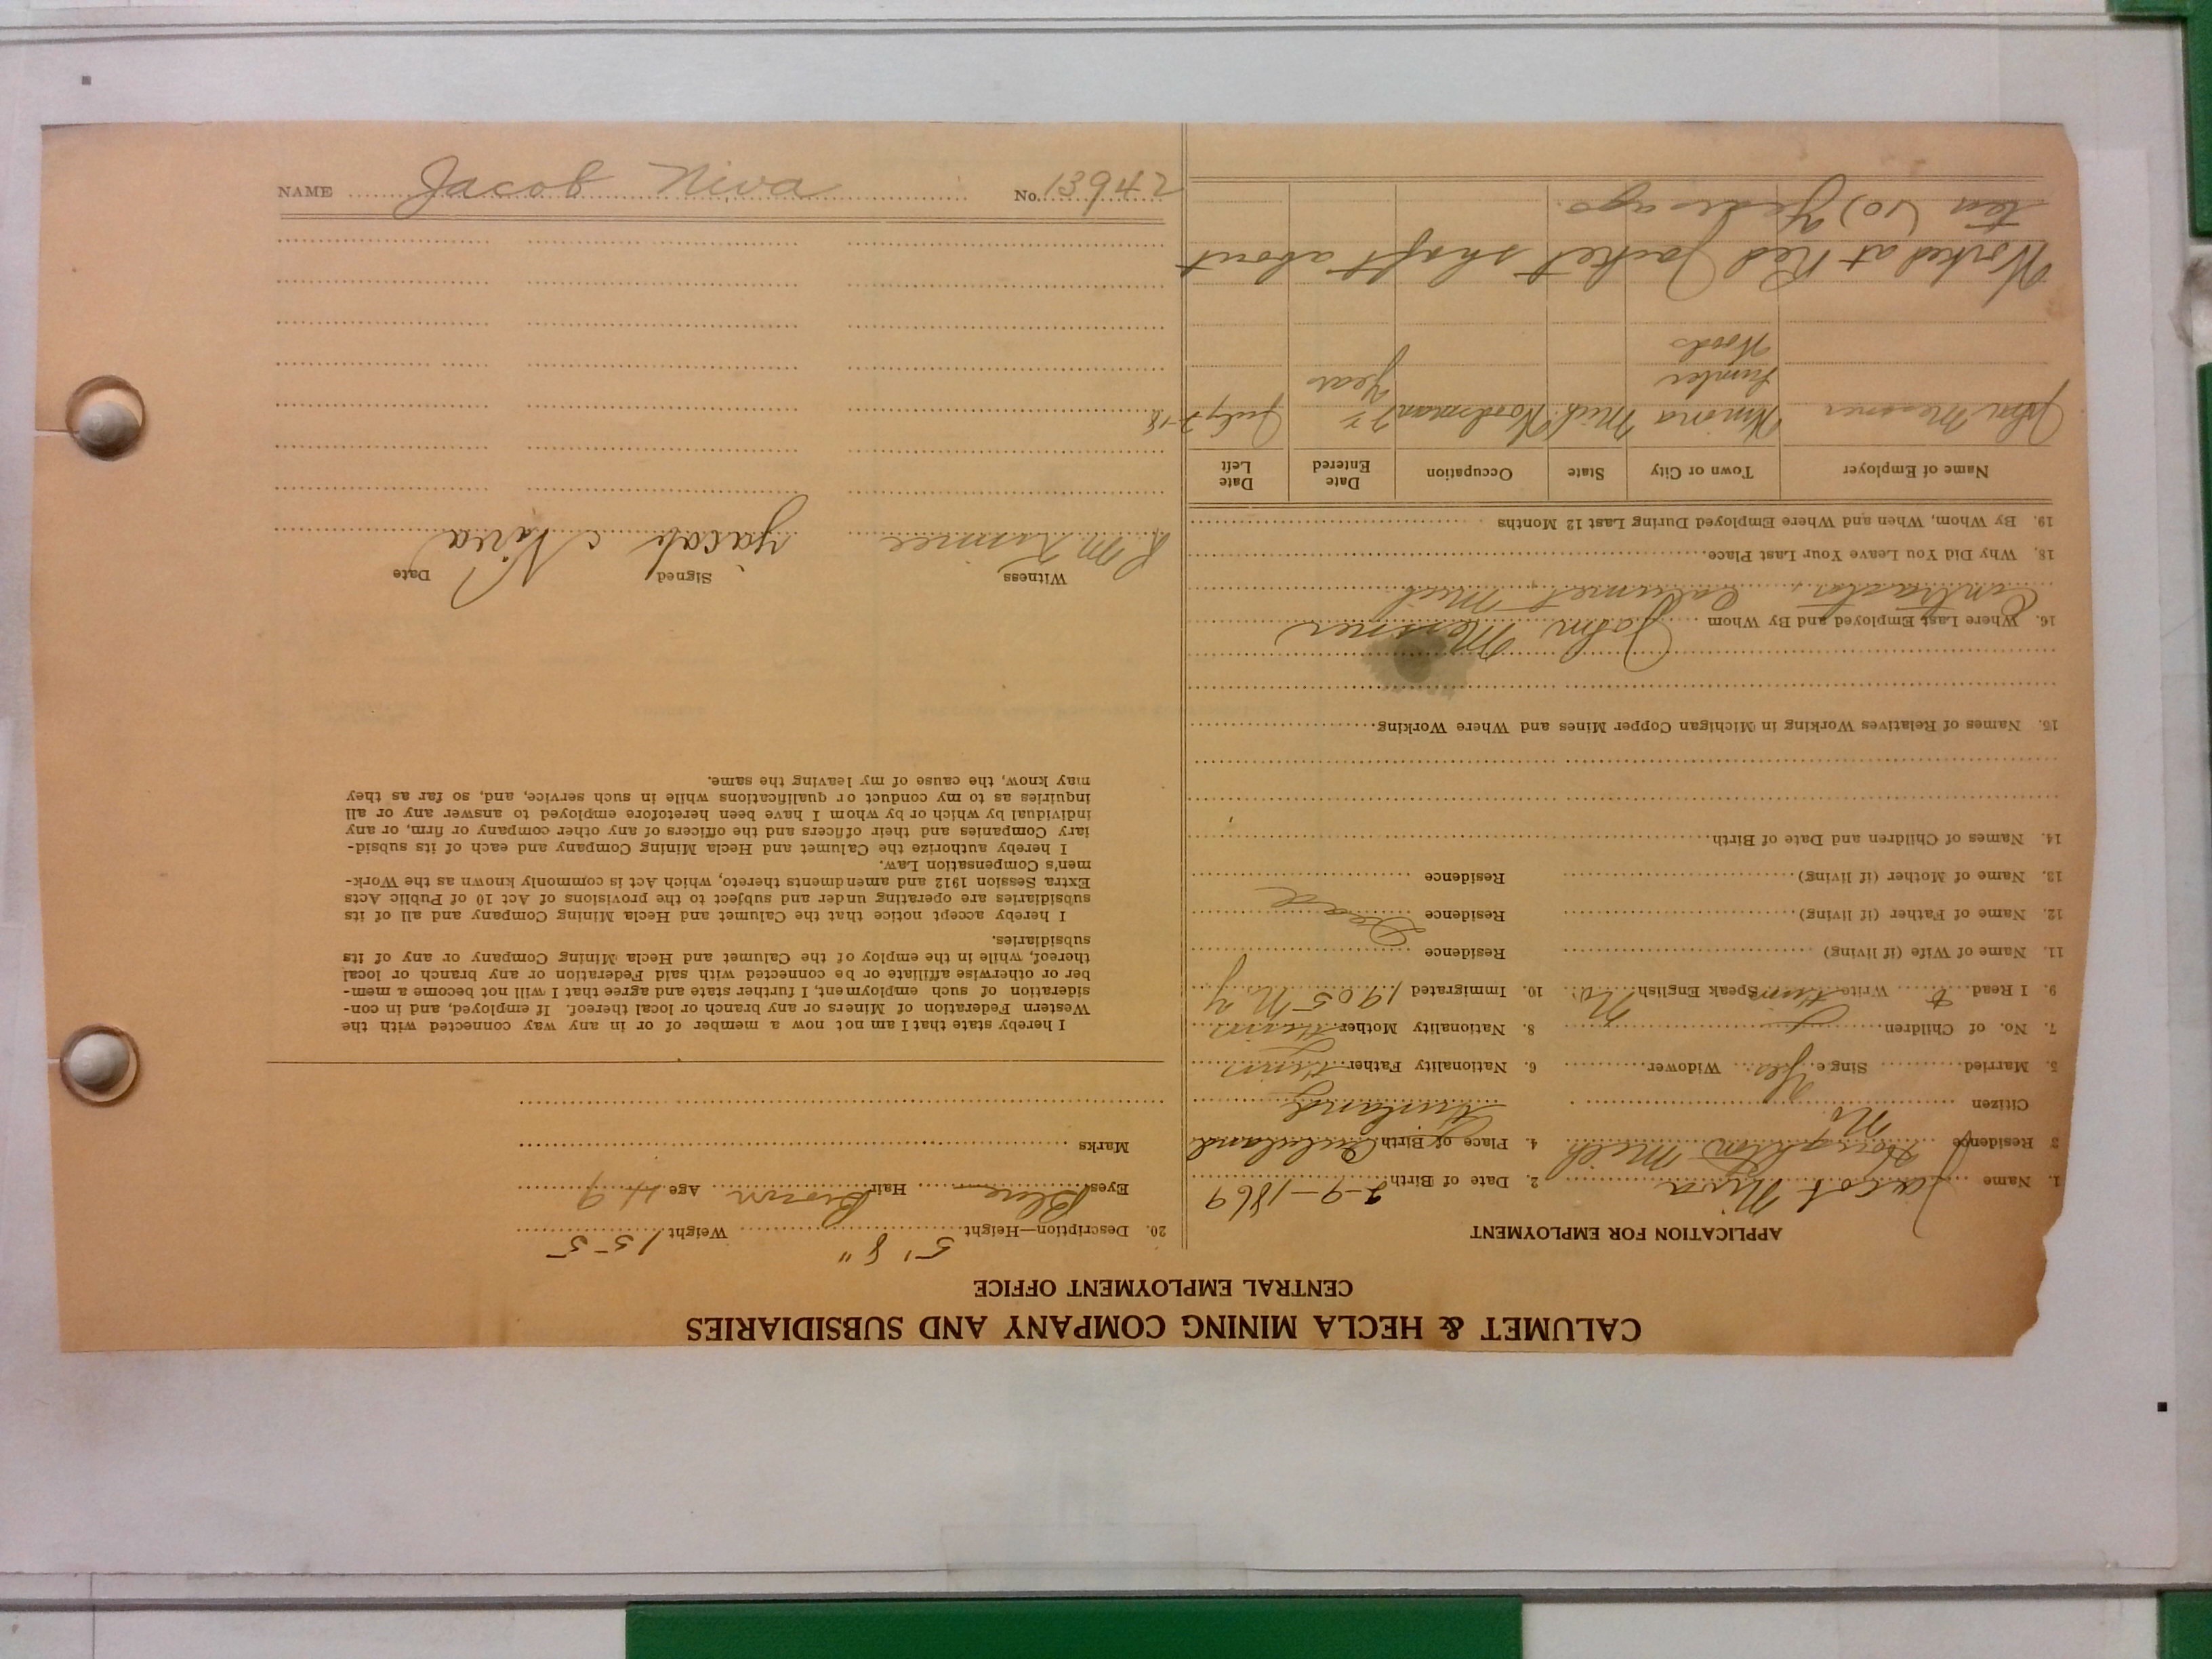 CALUMET & HECLA MINING COMPANY AND SUBSIDIARIES
CENTRAL EMPLOYMENT OFFICE
APPLICATION FOR EMPLOYMENT
1. Name Jacob Niva 2. Date of Birth 2-9-1869
3 Residence Houghton Mich 4. Place of Birth
Citizen No Finland
5. Married Single Yes Widower 6. Nationality Father Finn
7. No. of Children 8. Nationality Mother Finn
9. I Read & Write Finn Speak English No 10. Immigrated 1905 N.Y
11. Name of Wife (if living) Residence
12. Name of Father (if living) Residence Dead
13. Name of Mother (if living) Residence
14. Names of Children and Date of Birth
15. Names of Relatives Working in Michigan Copper Mines and Where Working
16. Where Last Employed and By Whom John Messner
Contractor, Calumet, Mich
18. Why Did You Leave Your Last Place
19. By Whom, When and Where Employed During Last 12 Months
Name of Employer Town or City State Occupation Date Entered Date Left
John Messner Winona Mich Woodsman July 2-18
Lumber Year
Woods
Worked at Red Jacket shaft about
ten (10) years ago.
20. Description—Height 5' 8" Weight 155
Eyes Blue Hair Brown Age 49
Marks
I hereby state that I am not now a member of or in any way connected with the
Western Federation of Miners or any branch or local thereof. If employed, and in con-
sideration of such employment, I further state and agree that I will not become a mem-
ber or otherwise affiliate or be connected with said Federation or any branch or local
thereof, while in the employ of the Calumet and Hecla Mining Company or any of its
subsidiaries.
I hereby accept notice that the Calumet and Hecla Mining Company and all of its
subsidiaries are operating under and subject to the provisions of Act 10 of Public Acts
Extra Session 1912 and amendments thereto, which Act is commonly known as the Work-
men's Compensation Law.
I hereby authorize the Calumet and Hecla Mining Company and each of its subsid-
iary Companies and their officers and the officers of any other company or firm, or any
individual by which or by whom I have been heretofore employed to answer any or all
inquiries as to my conduct or qualifications while in such service, and, so far as they
may know, the cause of my leaving the same.
Witness Signed Date
Jacob Niva
NAME Jacob Niva No. 13942